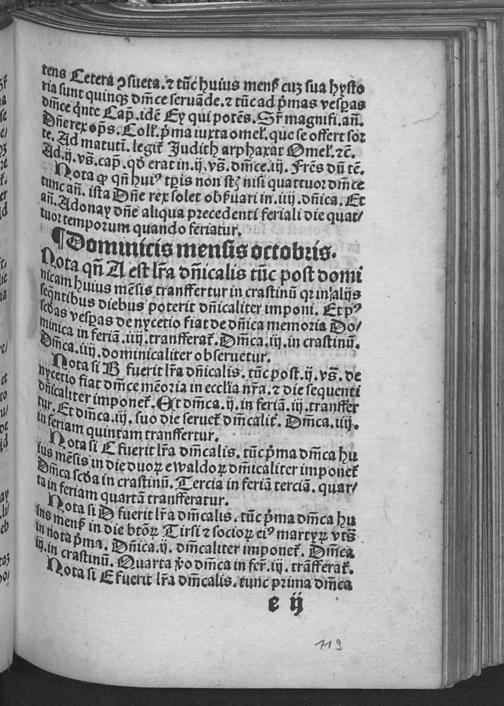 tens Cetera ꝯsueta. ⁊ tūc huius mensꝭ cuz sua hysto
ria sunt quinqꝫ dm̄ce seruāde. ⁊ tūc ad pͥmas vesꝑas
dm̄ce qͥnte Cap̄. idē Ey qui potēs. Sꝝ magnifi. añ.
Dñe rex op̄s. Coll. pͥma iuxta omel. que se offert sor
te. Ad matutī. legit̄ Judith arphaxat Omel. ⁊c̄.
Ad .ij. vs̄. cap̄. qd̄ erat in .ij. vs̄. dm̄ce .iij. Frēs dū tē.
Nota ꝙ qñ huiꝰ tp̄is non st̄ nisi quattuor dm̄ce
tunc añ. ista Dñe rex solet obẜuari in .iiij. dn̄ica. Et
añ. Adonay dñe aliqua precedenti feriali die quat/
tuor temporum quando feriatur.
¶Dominicis mensis octobris.
Nota qñ A est lr̄a dñicalis tūc post domi
nicam huius mēsis transffertur in crastinū qꝛ in alijs
seq̄ntibus diebus poterit dñicaliter imponi. Et pͥꝰ
scd̄as vesꝑas de nycetio fiat de dñica memoria Do/
minica in feriā .iiij. transferat̄. Dm̄ca .iij. in crastinū.
Dm̄ca .iiij. dominicaliter obseruetur.
Nota si B fuerit lr̄a dñicalis. tūc post .ij. vs̄. de
nycetio fiat dm̄ce mēoria in ecclīa nr̄a. ⁊ die sequenti
dñicaliter imponet̄. Et dm̄ca .ij. in feriā .iij. transffer
tur. Et dm̄ca .iij. suo die seruet̄ dm̄calit̄. Dm̄ca .iiij.
in feriam quintam transffertur.
Nota si C fuerit lr̄a dm̄calis. tūc pͥma dm̄ca hu
ius mēsis in die duoꝝ ewaldoꝝ dm̄icaliter imponet̄
Dm̄ca scd̄a in crastinū. Tercia in feriā terciā. quar/
ta in feriam quartā transfferatur.
Nota si D fuerit lr̄a dm̄calis. tūc pͥma dm̄ca hu
ius mensꝭ in die btōꝝ Tirsi ⁊ socioꝝ eiꝰ martyꝝ vts̄
in nota pͥma. Dm̄ica .ij. dm̄caliter imponet̄. Dm̄ca
.iij. in crastinū. Quarta ꝟo dm̄ca in fer̄. .iij. trāsferat̄.
Nota si E fuerit lr̄a dm̄calis. tunc prima dm̄ca
e ij
119